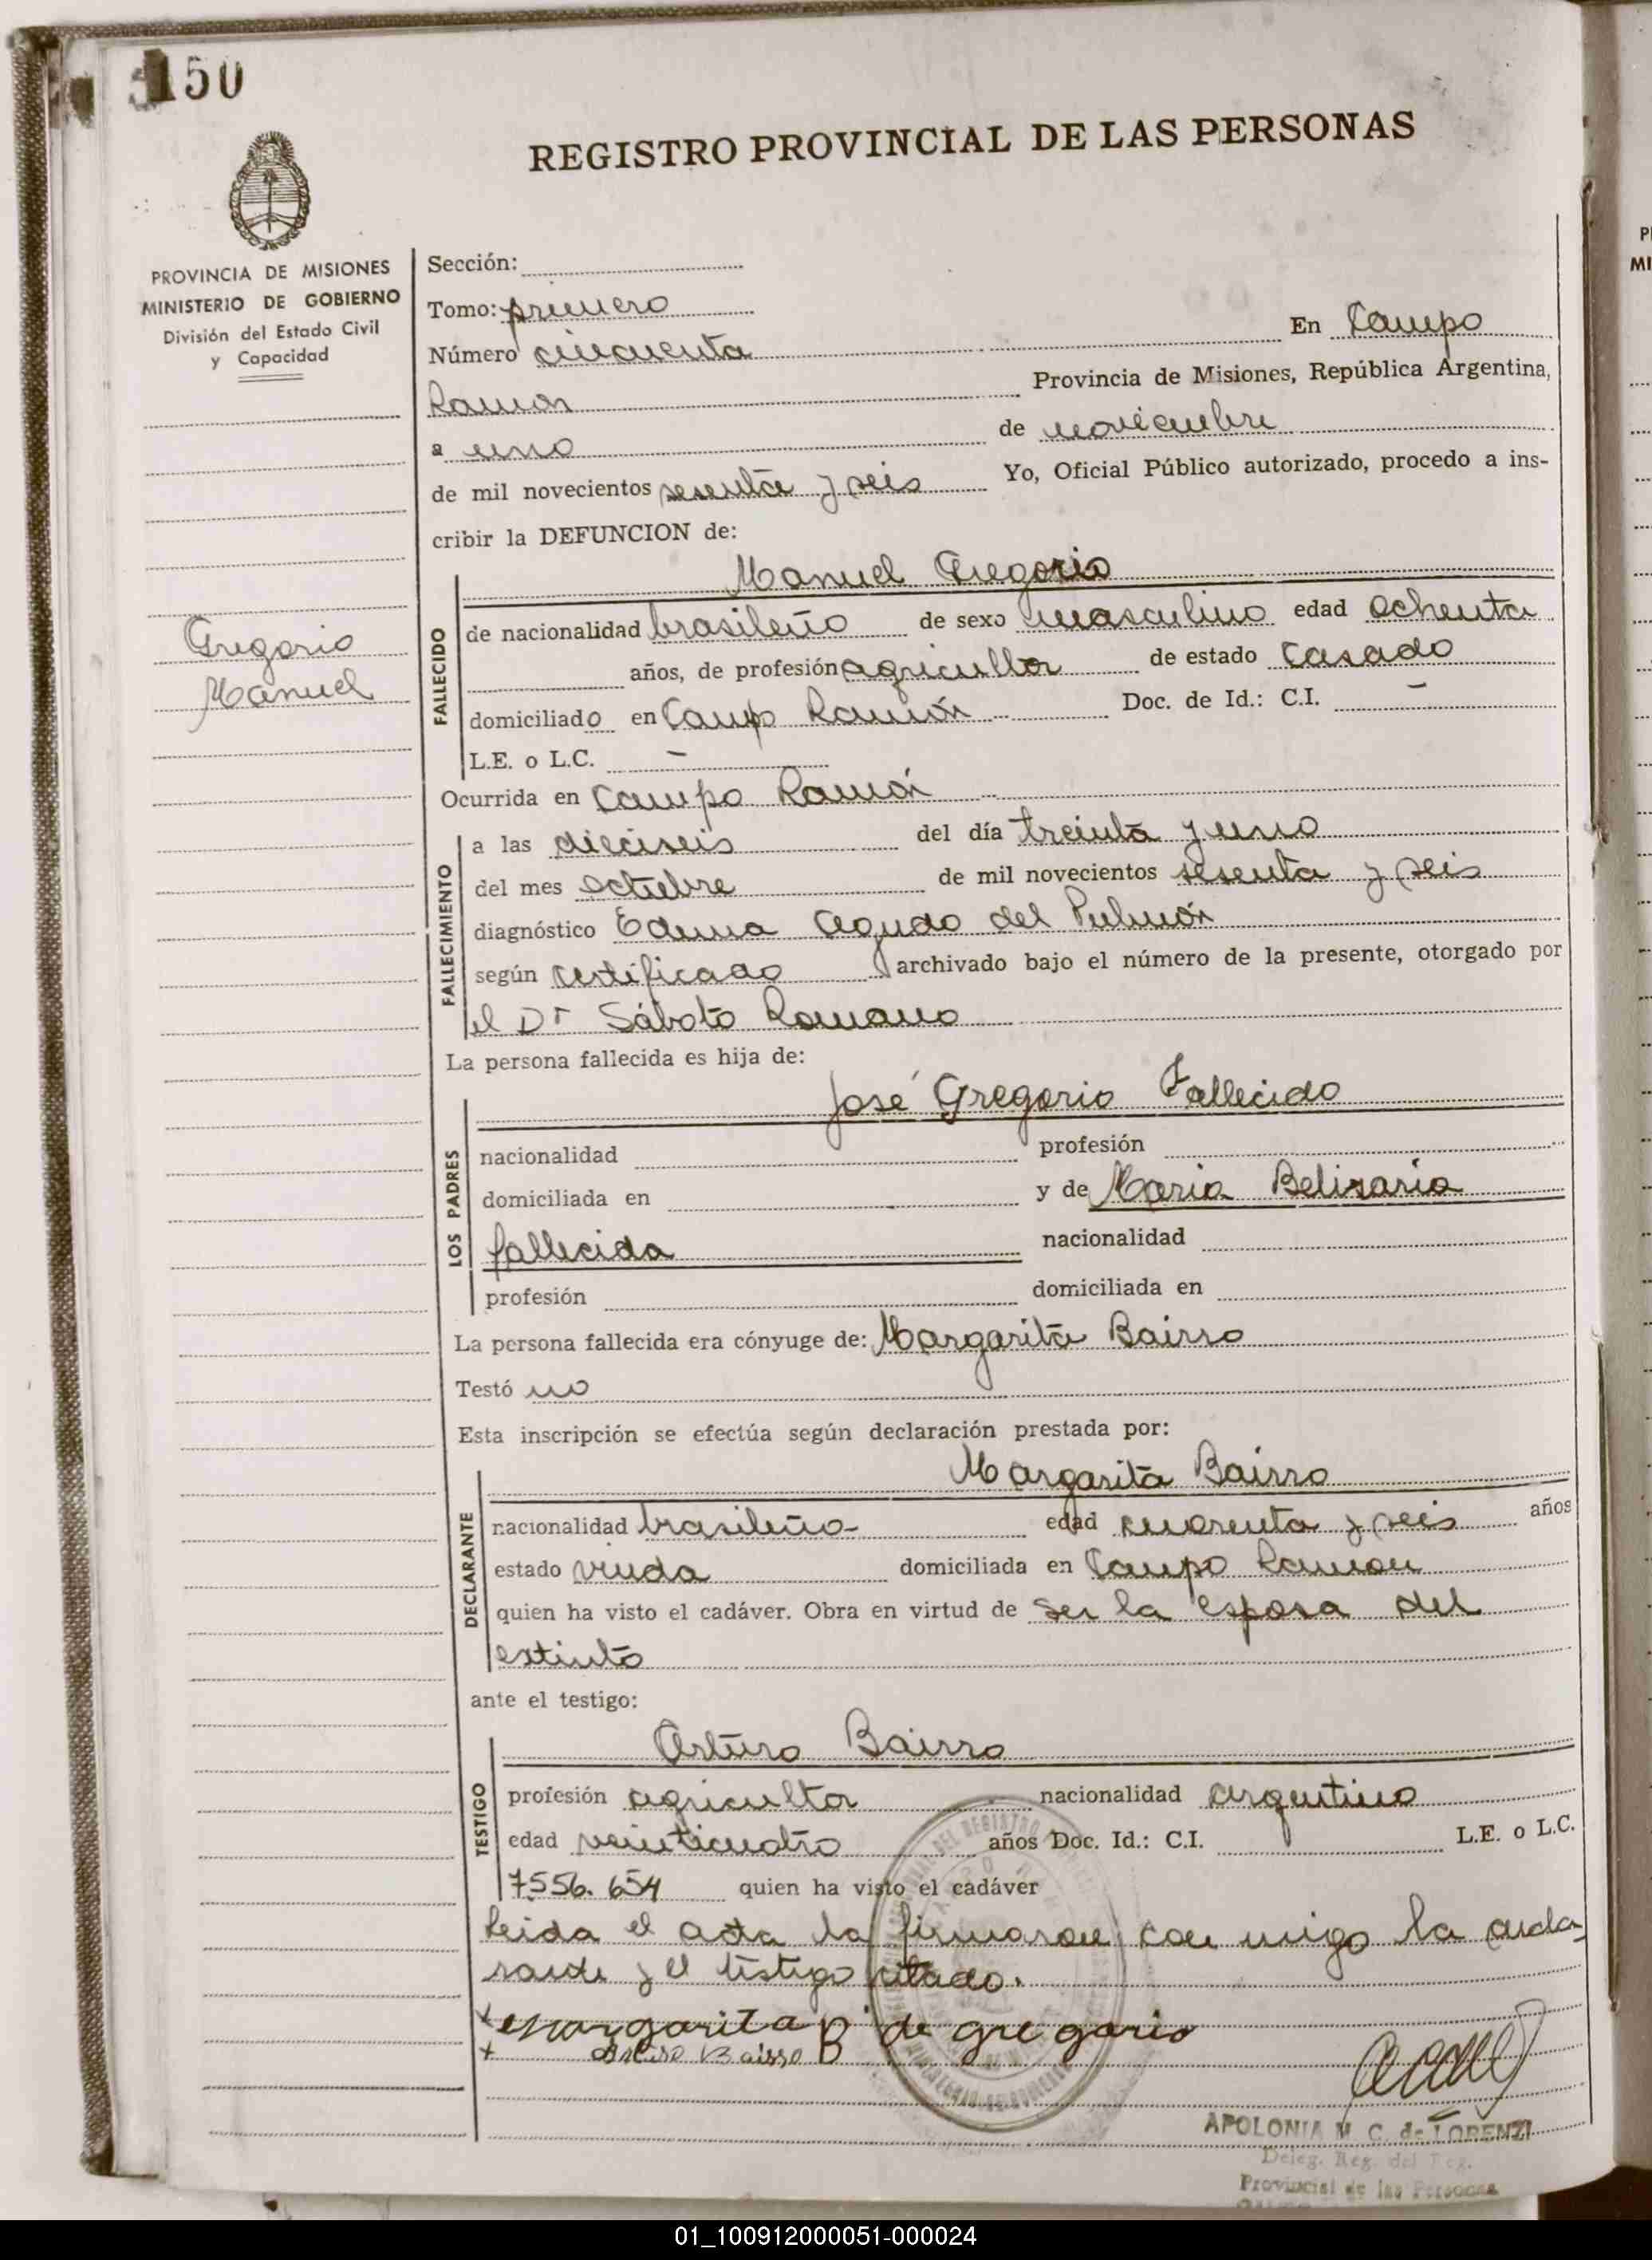 150
REGISTRO PROVINCIAL DE LAS PERSONAS
PROVINCIA DE MISIONES
MINISTERIO DE GOBIERNO
División del Estado Civil
y Capacidad
Gregorio
Manuel
Sección:
Tomo: primero
Número cincuenta En Campo
Ramón Provincia de Misiones, República Argentina,
a uno de noviembre
de mil novecientos sesenta y seis Yo, Oficial Público autorizado, procedo a ins-
cribir la DEFUNCION de:
FALLECIDO
Manuel Gregorio
de nacionalidad brasileño de sexo masculino edad ochenta
años, de profesión agricultor de estado casado
domiciliado en Campo Ramón Doc. de Id.: C.I. -
L.E. o L.C. -
Ocurrida en Campo Ramón
FALLECIMIENTO
a las dieciseis del día treinta y uno
del mes octubre de mil novecientos sesenta y seis
diagnóstico Edema Agudo del Pulmón
según certificado archivado bajo el número de la presente, otorgado por
el Dr Sábato Romano
La persona fallecida es hija de:
LOS PADRES
José Gregorio Fallecido
nacionalidad profesión
domiciliada en y de Maria Belisaria
fallecida nacionalidad
profesión domiciliada en
La persona fallecida era cónyuge de: Margarita Bairro
Testó no
Esta inscripción se efectúa según declaración prestada por:
DECLARANTE
Margarita Bairro
nacionalidad brasileña edad cuarenta y seis años
estado viuda domiciliada en Campo Ramon
quien ha visto el cadáver. Obra en virtud de ser la esposa del
extinto
ante el testigo:
TESTIGO
Arturo Bairro
profesión agricultor nacionalidad argentino
edad veinticuatro años Doc. Id.: C.I. L.E. o L.C.
7556.654 quien ha visto el cadáver
Leida el acta la firmaron con migo la
y el testigo citado.
x Margarita B de gregorio
x Arturo Bairro
APOLONIA M. C. de LORENZI
Deleg. Reg. del Reg.
Provincial de las Personas
01_100912000051-000024